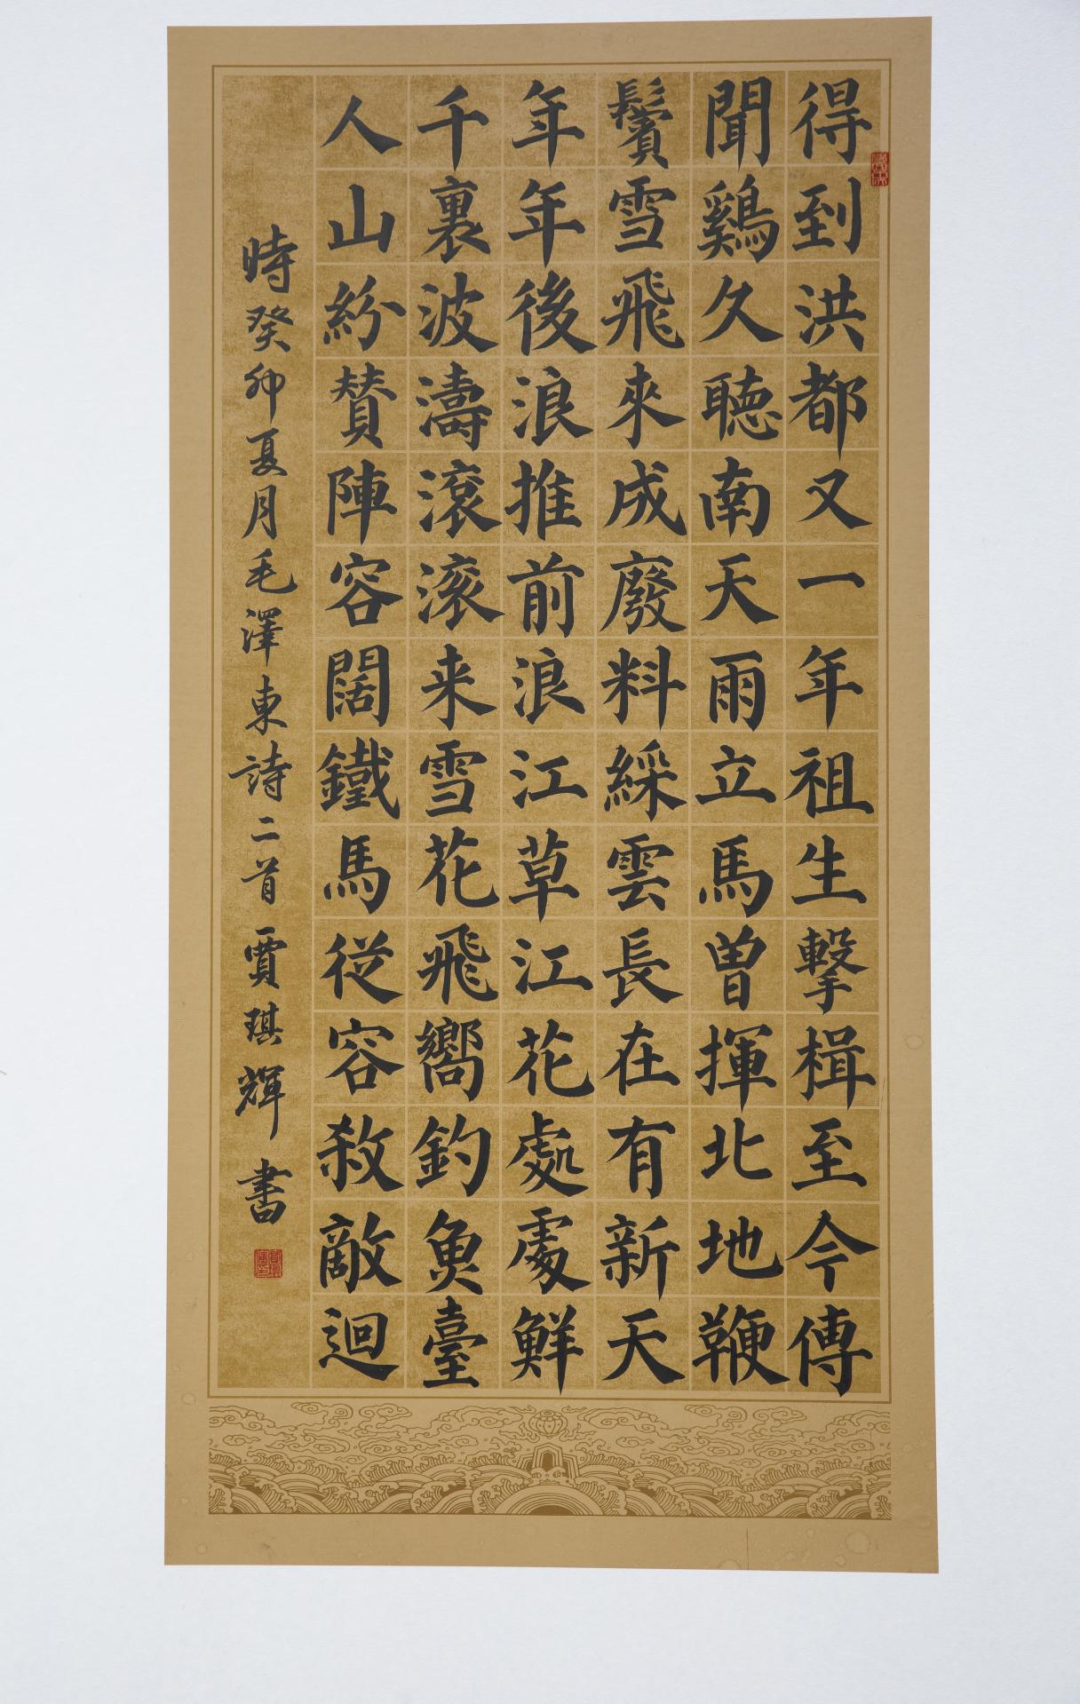 得到洪都又一年祖生擊楫至今傳
聞鷄久聽南天雨立馬曽揮北地鞭
鬢雪飛來成廢料綵雲長在有新天
年年後浪推前浪江草江花處處鮮
千裏波濤滾滚来雪花飛嚮釣魚臺
人山紛賛陣容闊鐵馬従容敘敵迴
時癸卯夏月毛澤東詩二首賈琪輝書